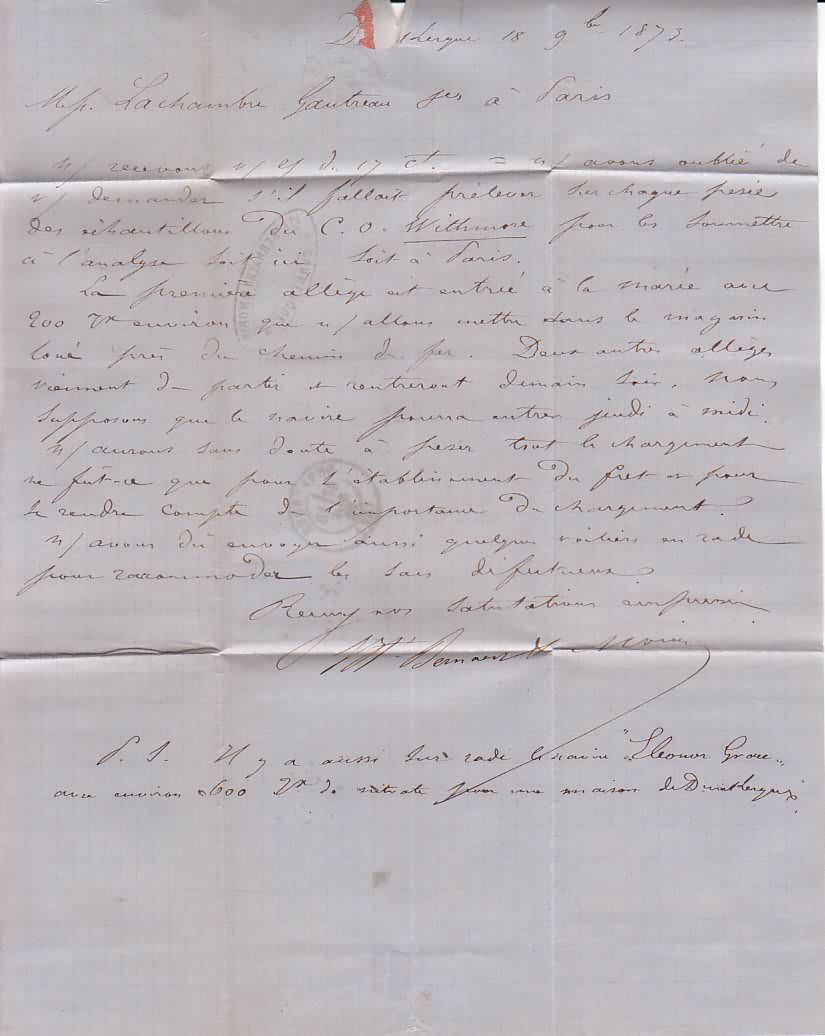 D kerque 18 9b 1873.
Mess. Lachambre Gautreau & à Paris
n/ recevons v/ du 17 ct. = n/ avons oublié de
v/ demander s'il fallait prélever sur chaque pesée
des échantillons du C. O. Withmore pour les soumettre
à l'analyse soit ici soit à Paris.
La première allège est entrée à la marée avec
200 Tx environ que n/ allons mettre dans le magasin
loué près du chemin de fer. Deux autres allèges
viennent de partir et rentreront demain soir. Nous
supposons que le navire pourra entrer jeudi à midi.
N/ aurons sans doute à peser tout le chargement
ne fût-ce que pour l'établissement du fret et pour
se rendre compte de l'importance du chargement.
N/ avons dû envoyer aussi quelques voiliers en rade
pour raccommoder les sacs défectueux
Recevez nos salutations empressées
P. S. Il y a aussi sur rade le navire "Eleonor Grace"
avec environ 600 Tx de nitrate pour une maison de Dunkerque